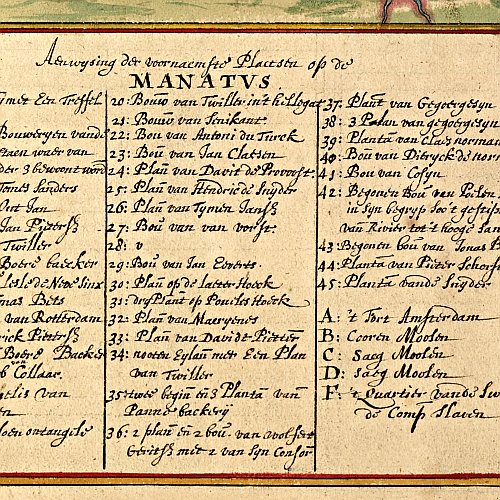 Aenwysing der voornaemste Plaetsen op de
MANATVS
met Een Treffel
Bouweryen vande
staen waer van
der 3 bewoont word
Tomes Sanders
Ont Jan
Jan Pietersz
Twiller
Boere backer
Lesle de Neve sinx
nas Bets
van Rotterdam
rick Pietersz
Boere Backer
Collaar
elis van
en
loen ontangele
20: Bouw van Twiller in't hellegat
21: Bouw van Senikant
22: Bou van Antoni du Turck
23: Bou van Jan Claesen
24: Plan van Davit de Provoost
25: Plan van Hendric de Snyder
26: Plan van Tymen Jansz
27: Bou van van vorst
28: v
29: Bou van Jan Everts
30: Plan op de Laeter Hoeck
31: dry Plant op Poueles Hoeck
32: Plan van Maeryenes
33: Plan van Davidt Pietten
34: nooten Eylant met Een Plan
van Twiller
35 twee begin en 3 Planta van
Panne backery
36: 2 plan en 2 bou van wolfert
Geritsz met 2 van syn Consor
37: Plant van Gegoergesyn
38: 3 Plan van gegoergesyn
39: Planta van Claes norman
40: Bou van Dieryck de nor
41: Bou van Cosyn
42: Begonen Bou van
in syn begryp soo't gestip
van Rivier tot t hooge Lan
43 Begonen bou van Jonas B
44: Planta van Pieter Schorf
45: Planta vande Snyder
A: 't Fort Amsterdam
B: Cooren Moolen
C: Saeg Moolen
D: Saeg Moolen
F: 't Quartier vande Sw
de Comp Slaven